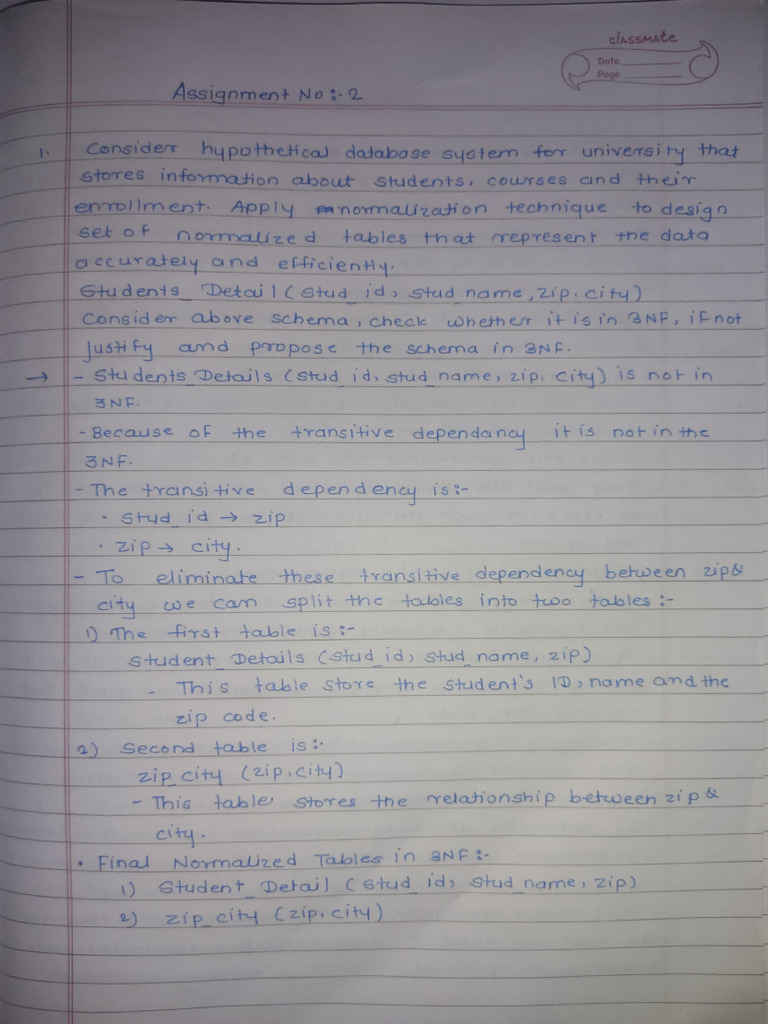 classmate
Date
Page
Assignment No :- 2
1. Consider hypothetical database system for university that
stores information about students, courses and their
enrollment. Apply normalization technique to design
set of normalized tables that represent the data
accurately and efficiently.
Students_Detail (stud_id, stud_name, zip, city)
Consider above schema, check whether it is in 3NF, if not
justify and propose the schema in 3NF.
→ - Students_Details (stud_id, stud_name, zip, city) is not in
3NF.
- Because of the transitive dependancy it is not in the
3NF.
- The transitive dependency is :-
• stud_id → zip
• zip → city.
- To eliminate these transitive dependency between zip &
city we can split the tables into two tables :-
1) The first table is :-
Student_Details (stud_id, stud_name, zip)
- This table store the student's ID, name and the
zip code.
2) Second table is :-
zip_city (zip, city)
- This table stores the relationship between zip &
city.
• Final Normalized Tables in 3NF :-
1) Student_Detail (stud_id, stud_name, zip)
2) zip_city (zip, city)